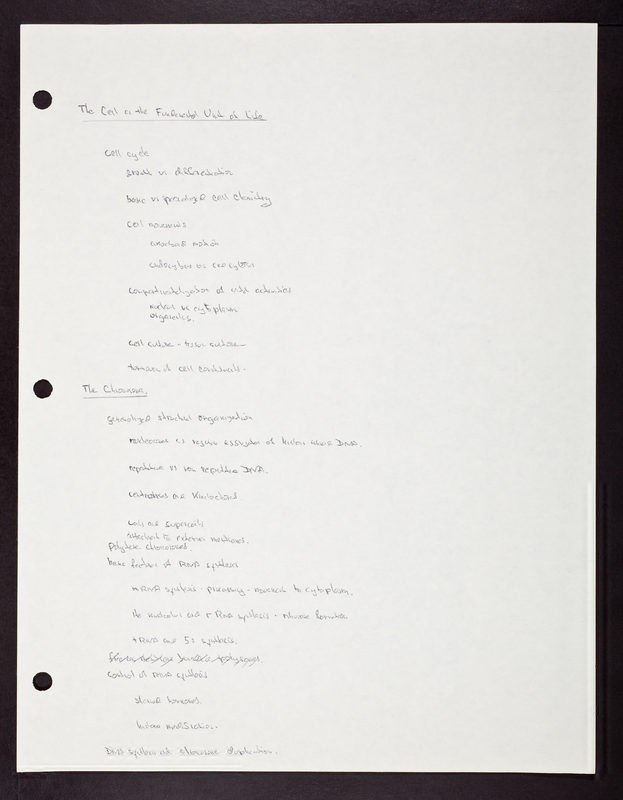 The Cell as the Fundamental Unit of Life
Cell cycle
growth vs differentiation
basic vs specialized cell chemistry
Cell movements
motion
endocytosis vs exocytosis
compartmentalization of cell activities
nucleus vs cytoplasm
organelles.
cell culture - tissue culture -
of cell constituents -
The Chromosome.
generalized structural organization
nucleosomes as regular of histone DNA.
repetitive vs non repetitive DNA.
centromeres and kinetochores.
coils and supercoils
attachment to exterior membranes.
Polytene chromosomes.
basic features of RNA synthesis
mRNA synthesis - processing - movement to cytoplasm.
the nucleolus and rRNA synthesis - ribosome formation
tRNA and 5s synthesis.
control of RNA synthesis
steroid hormones.
histone modification.
DNA synthesis and chromosome duplication.